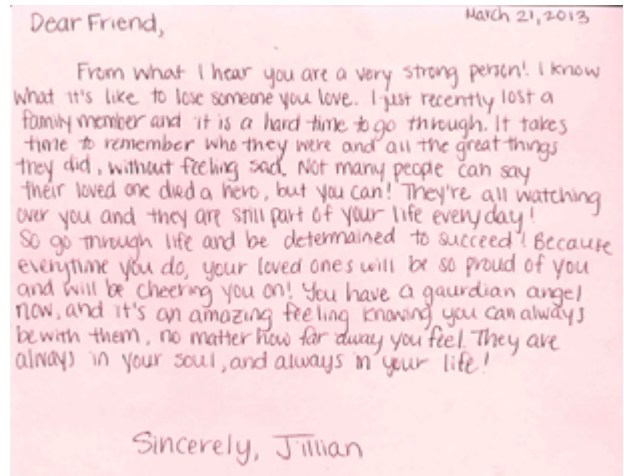 March 21, 2013
Dear Friend,
From what I hear you are a very strong person! I know
what it's like to lose someone you love. I just recently lost a
family member and it is a hard time to go through. It takes
time to remember who they were and all the great things
they did, without feeling sad. Not many people can say
their loved one died a hero, but you can! They're all watching
over you and they are still part of your life everyday!
So go through life and be determained to succeed! Because
everytime you do, your loved ones will be so proud of you
and will be cheering you on! You have a gaurdian angel
now, and it's an amazing feeling knowing you can always
be with them, no matter how far away you feel. They are
always in your soul, and always in your life!
Sincerely, Jillian